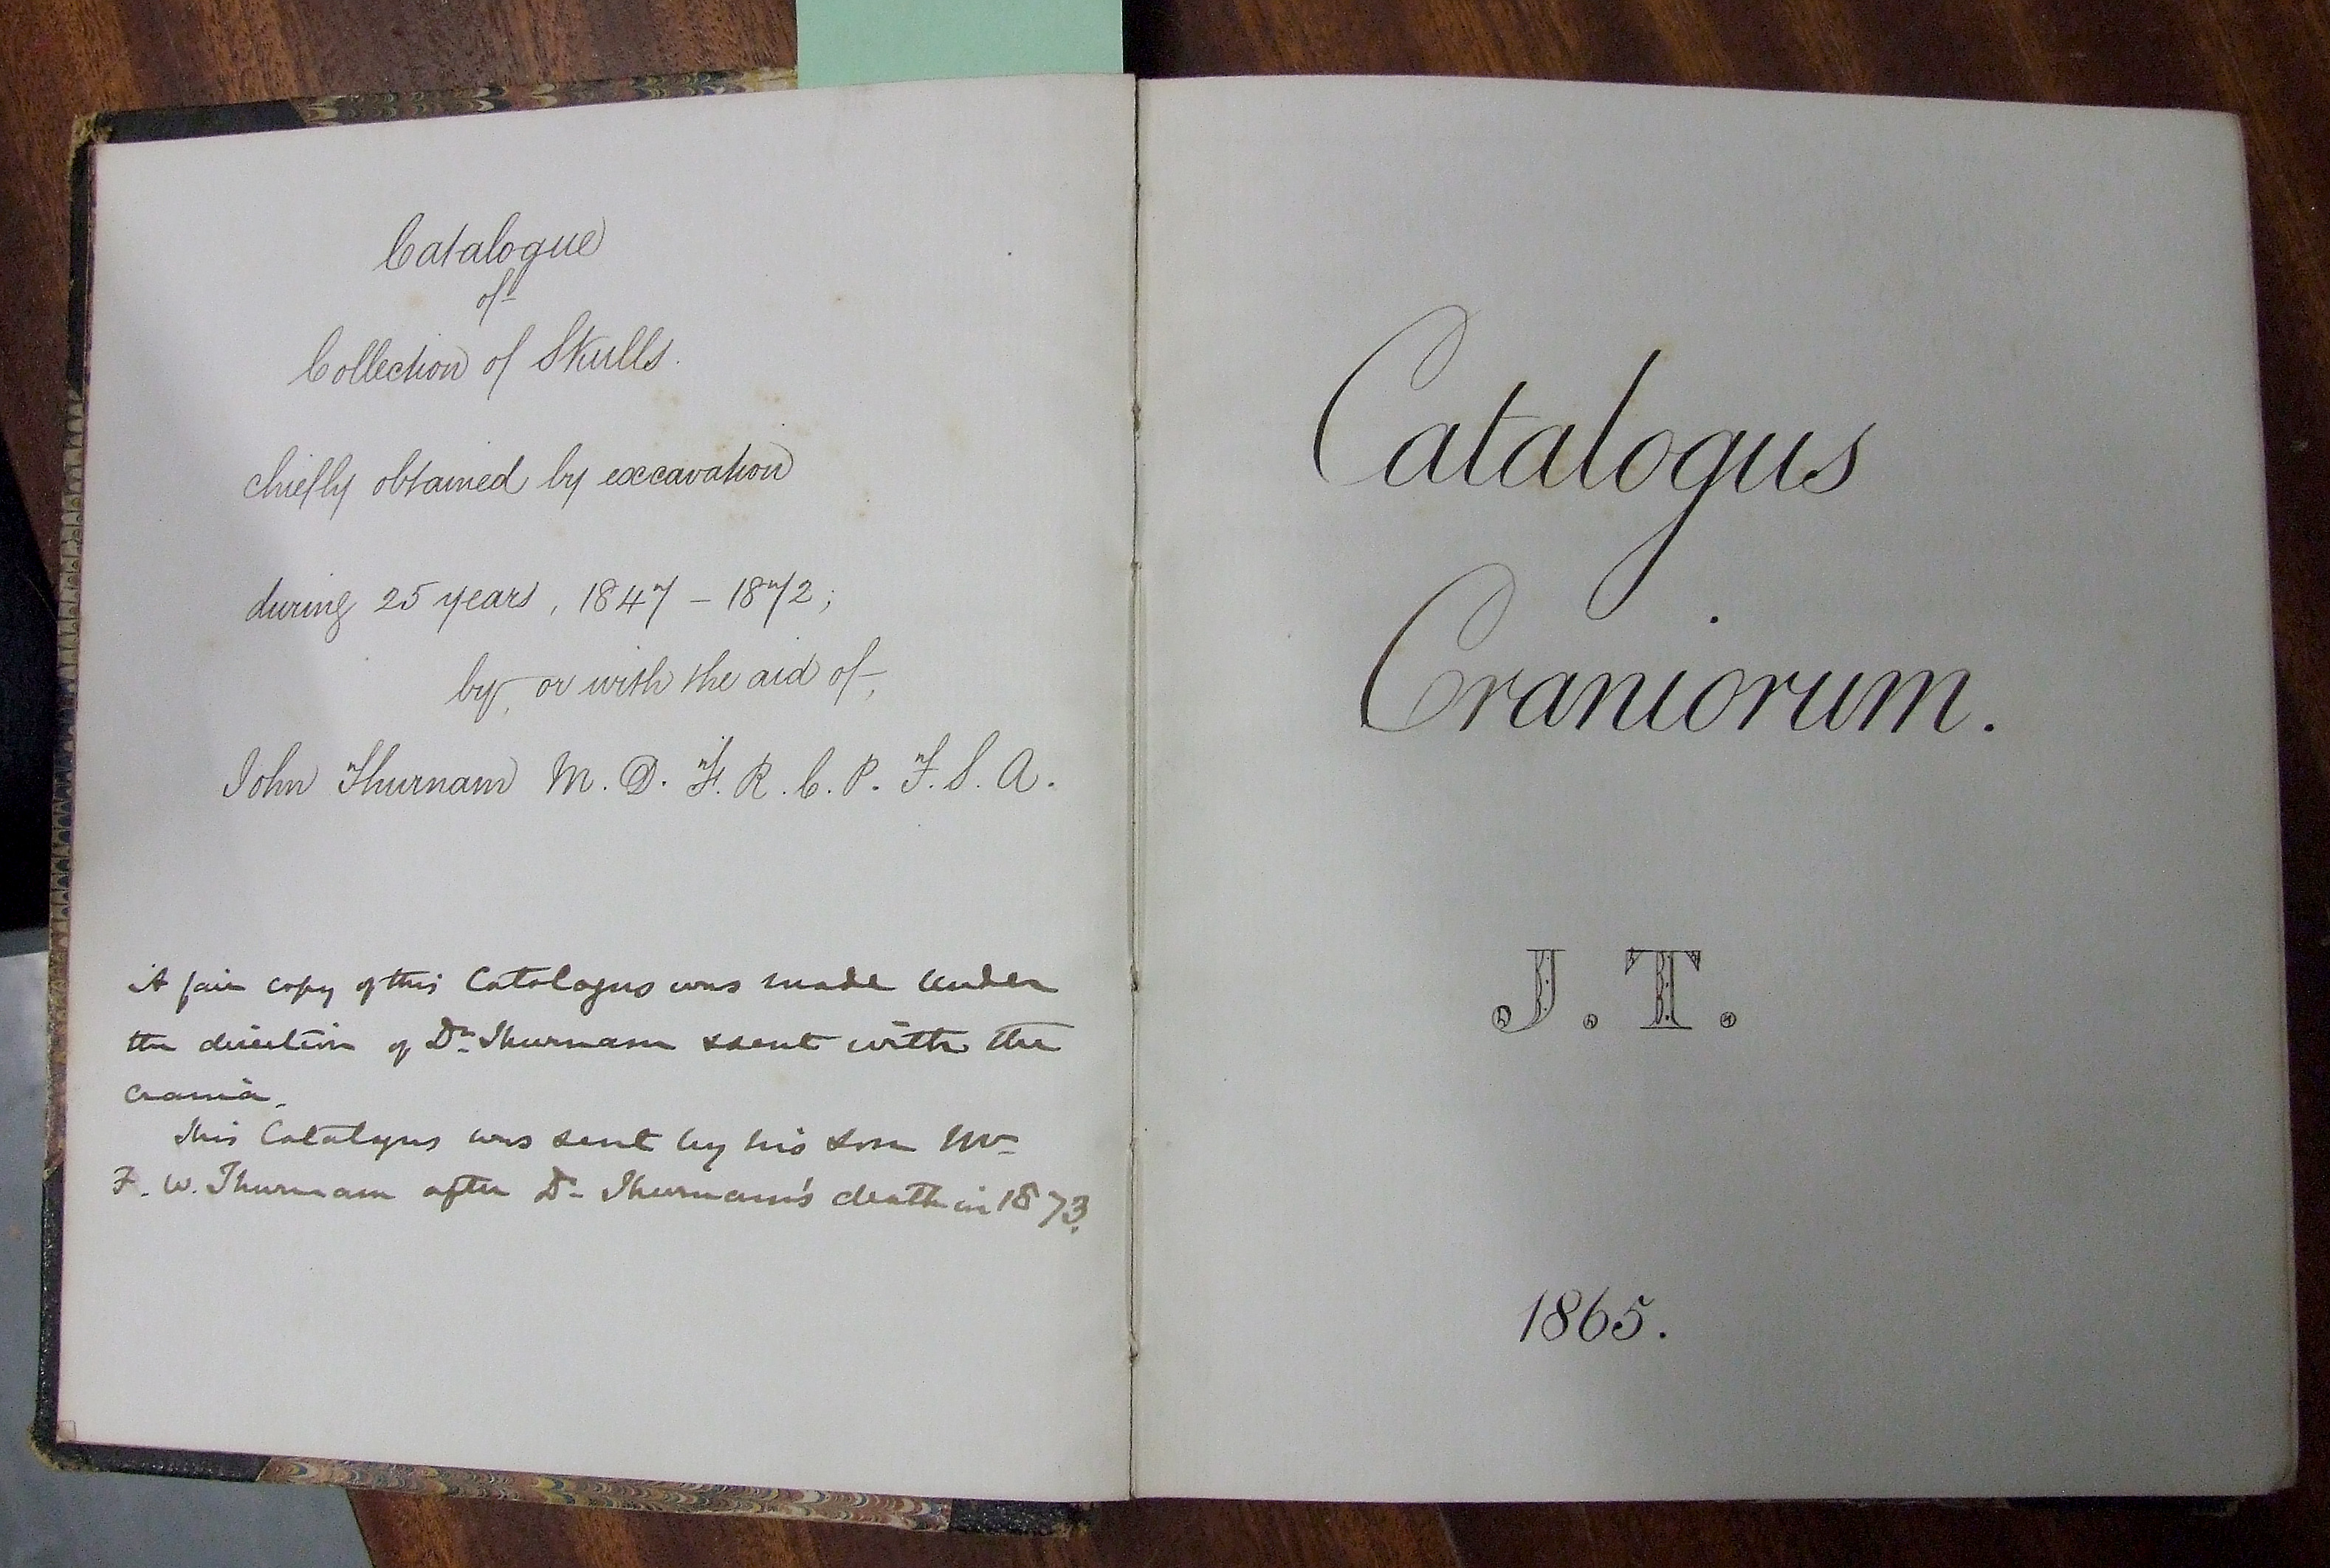 Catalogue
of
Collection of Skulls.
chiefly obtained by excavation
during 25 years, 1847 – 1872;
by, or with the aid of,
John Thurnam M. D. F. R. C. P. F. S. A.
A fair copy of this Catalogus was made under
the direction of Dr. Thurnam & sent with the
crania.
This Catalogus was sent by his son Mr
F. W. Thurnam after Dr Thurnam's death in 1873.
Catalogus
Craniorum.
J. T.
1865.